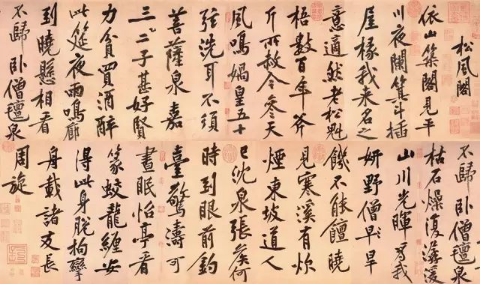 松風閣
依山築閣見平
川夜闌箕斗插
屋椽我來名之
意適然老松魁
梧數百年斧
斤所赦今參天
風鳴媧皇五十
弦洗耳不須
菩薩泉嘉
三二子甚好賢
力貧買酒醉
此筵夜雨鳴廊
到曉懸相看
不歸臥僧氈泉
不歸臥僧氈泉
枯石燥復潺湲
山川光暉為我
妍野僧早旱
饑不能饘曉
見寒溪有炊
煙東坡道人
已沈泉張侯何
時到眼前釣
臺驚濤可
晝眠怡亭看
篆蛟龍纏安
得此身脫拘攣
舟載諸友長
周旋